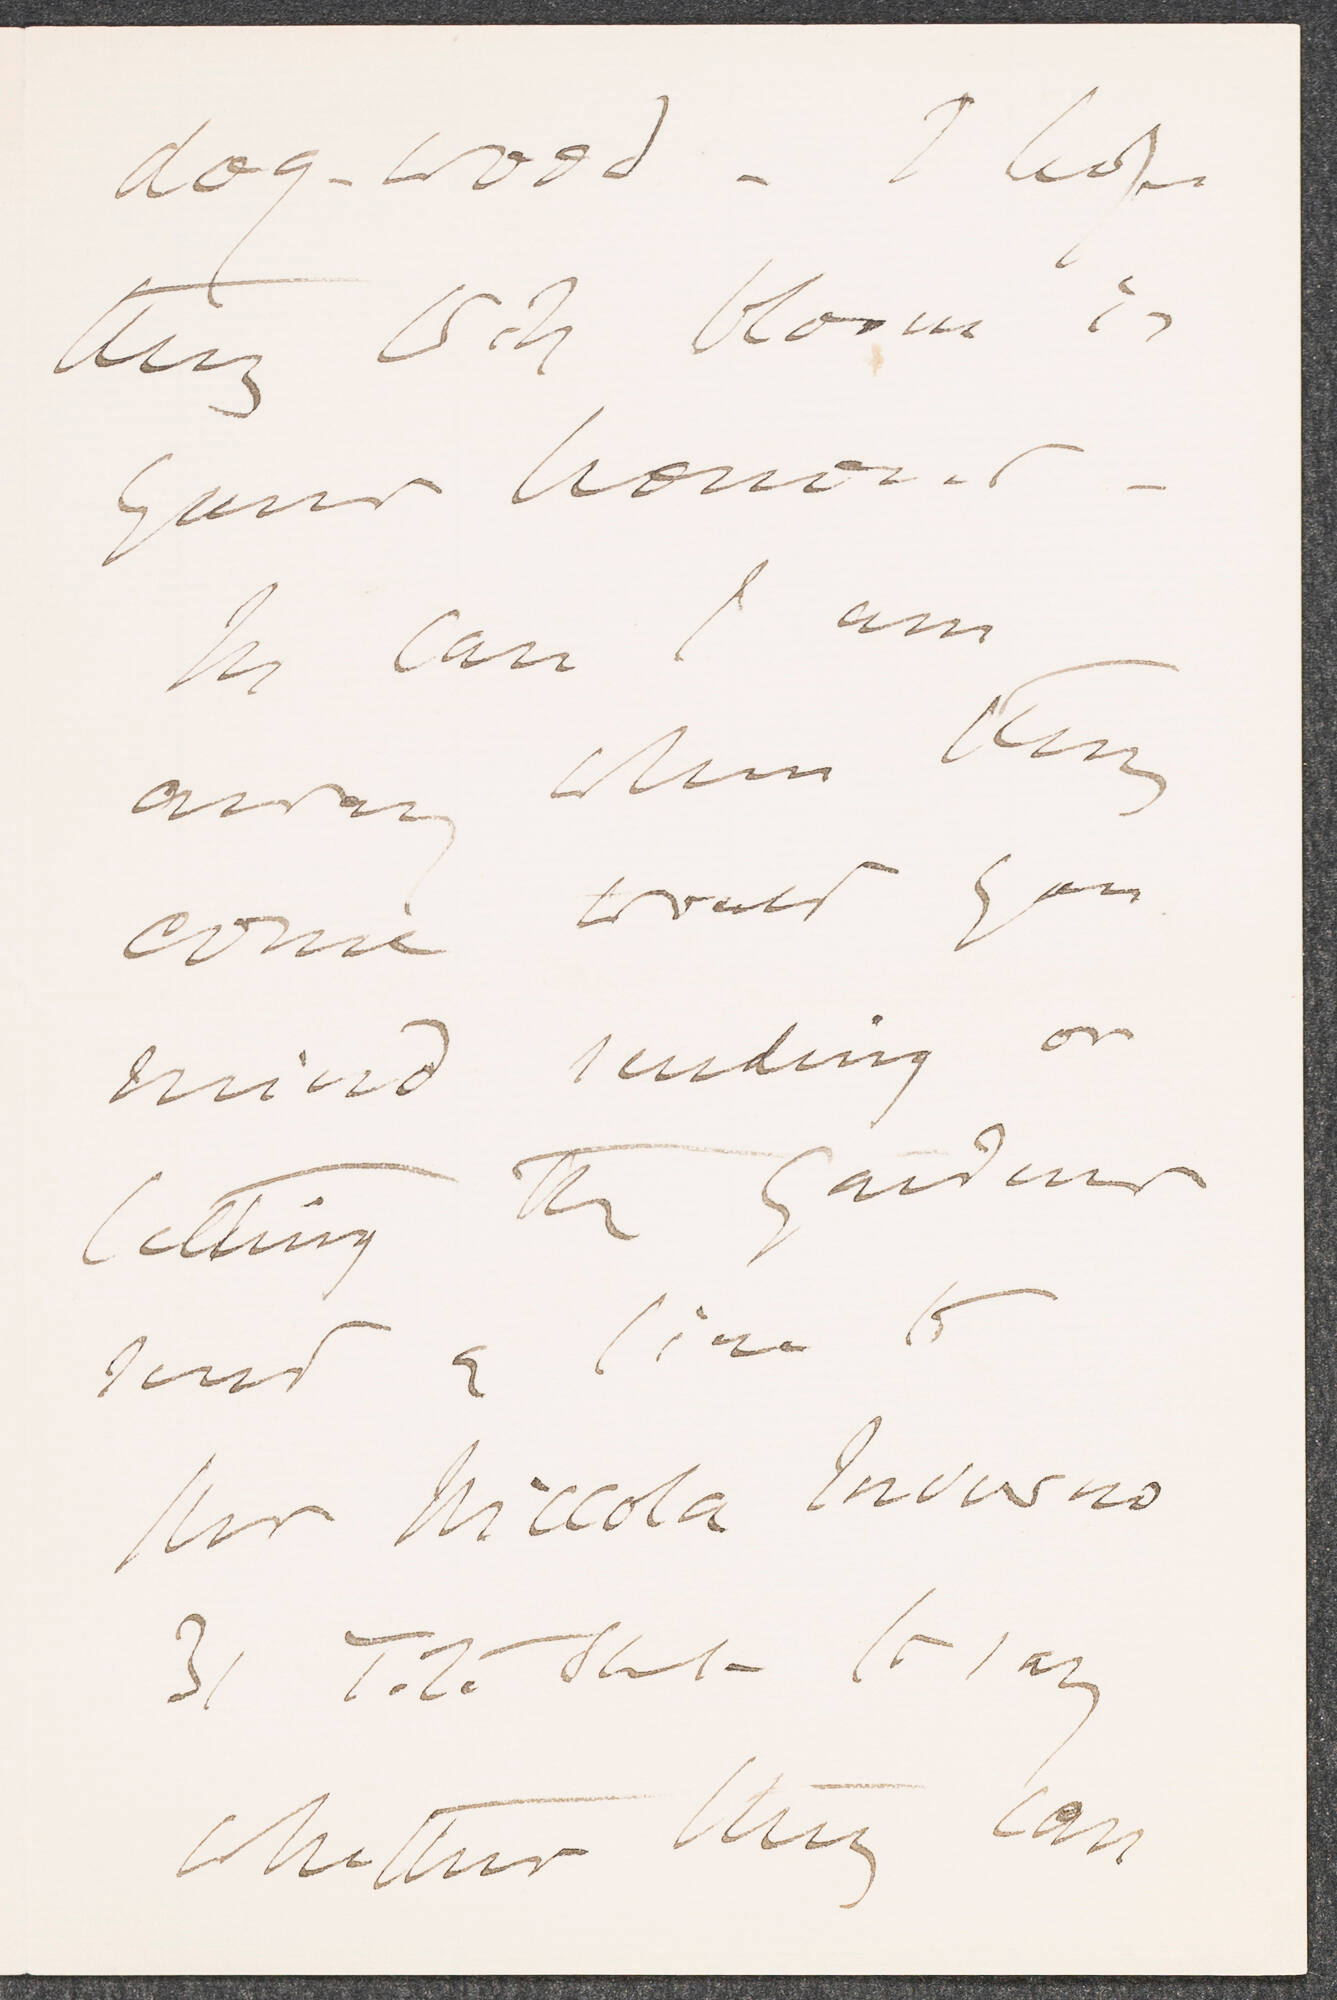 dog-wood - I hope
they bloom in
your honour -
In case I am
away when they
come would you
mind sending or
letting the gardener
send a line to
Niccola Inverno
31 Tite Street to say
whether they can